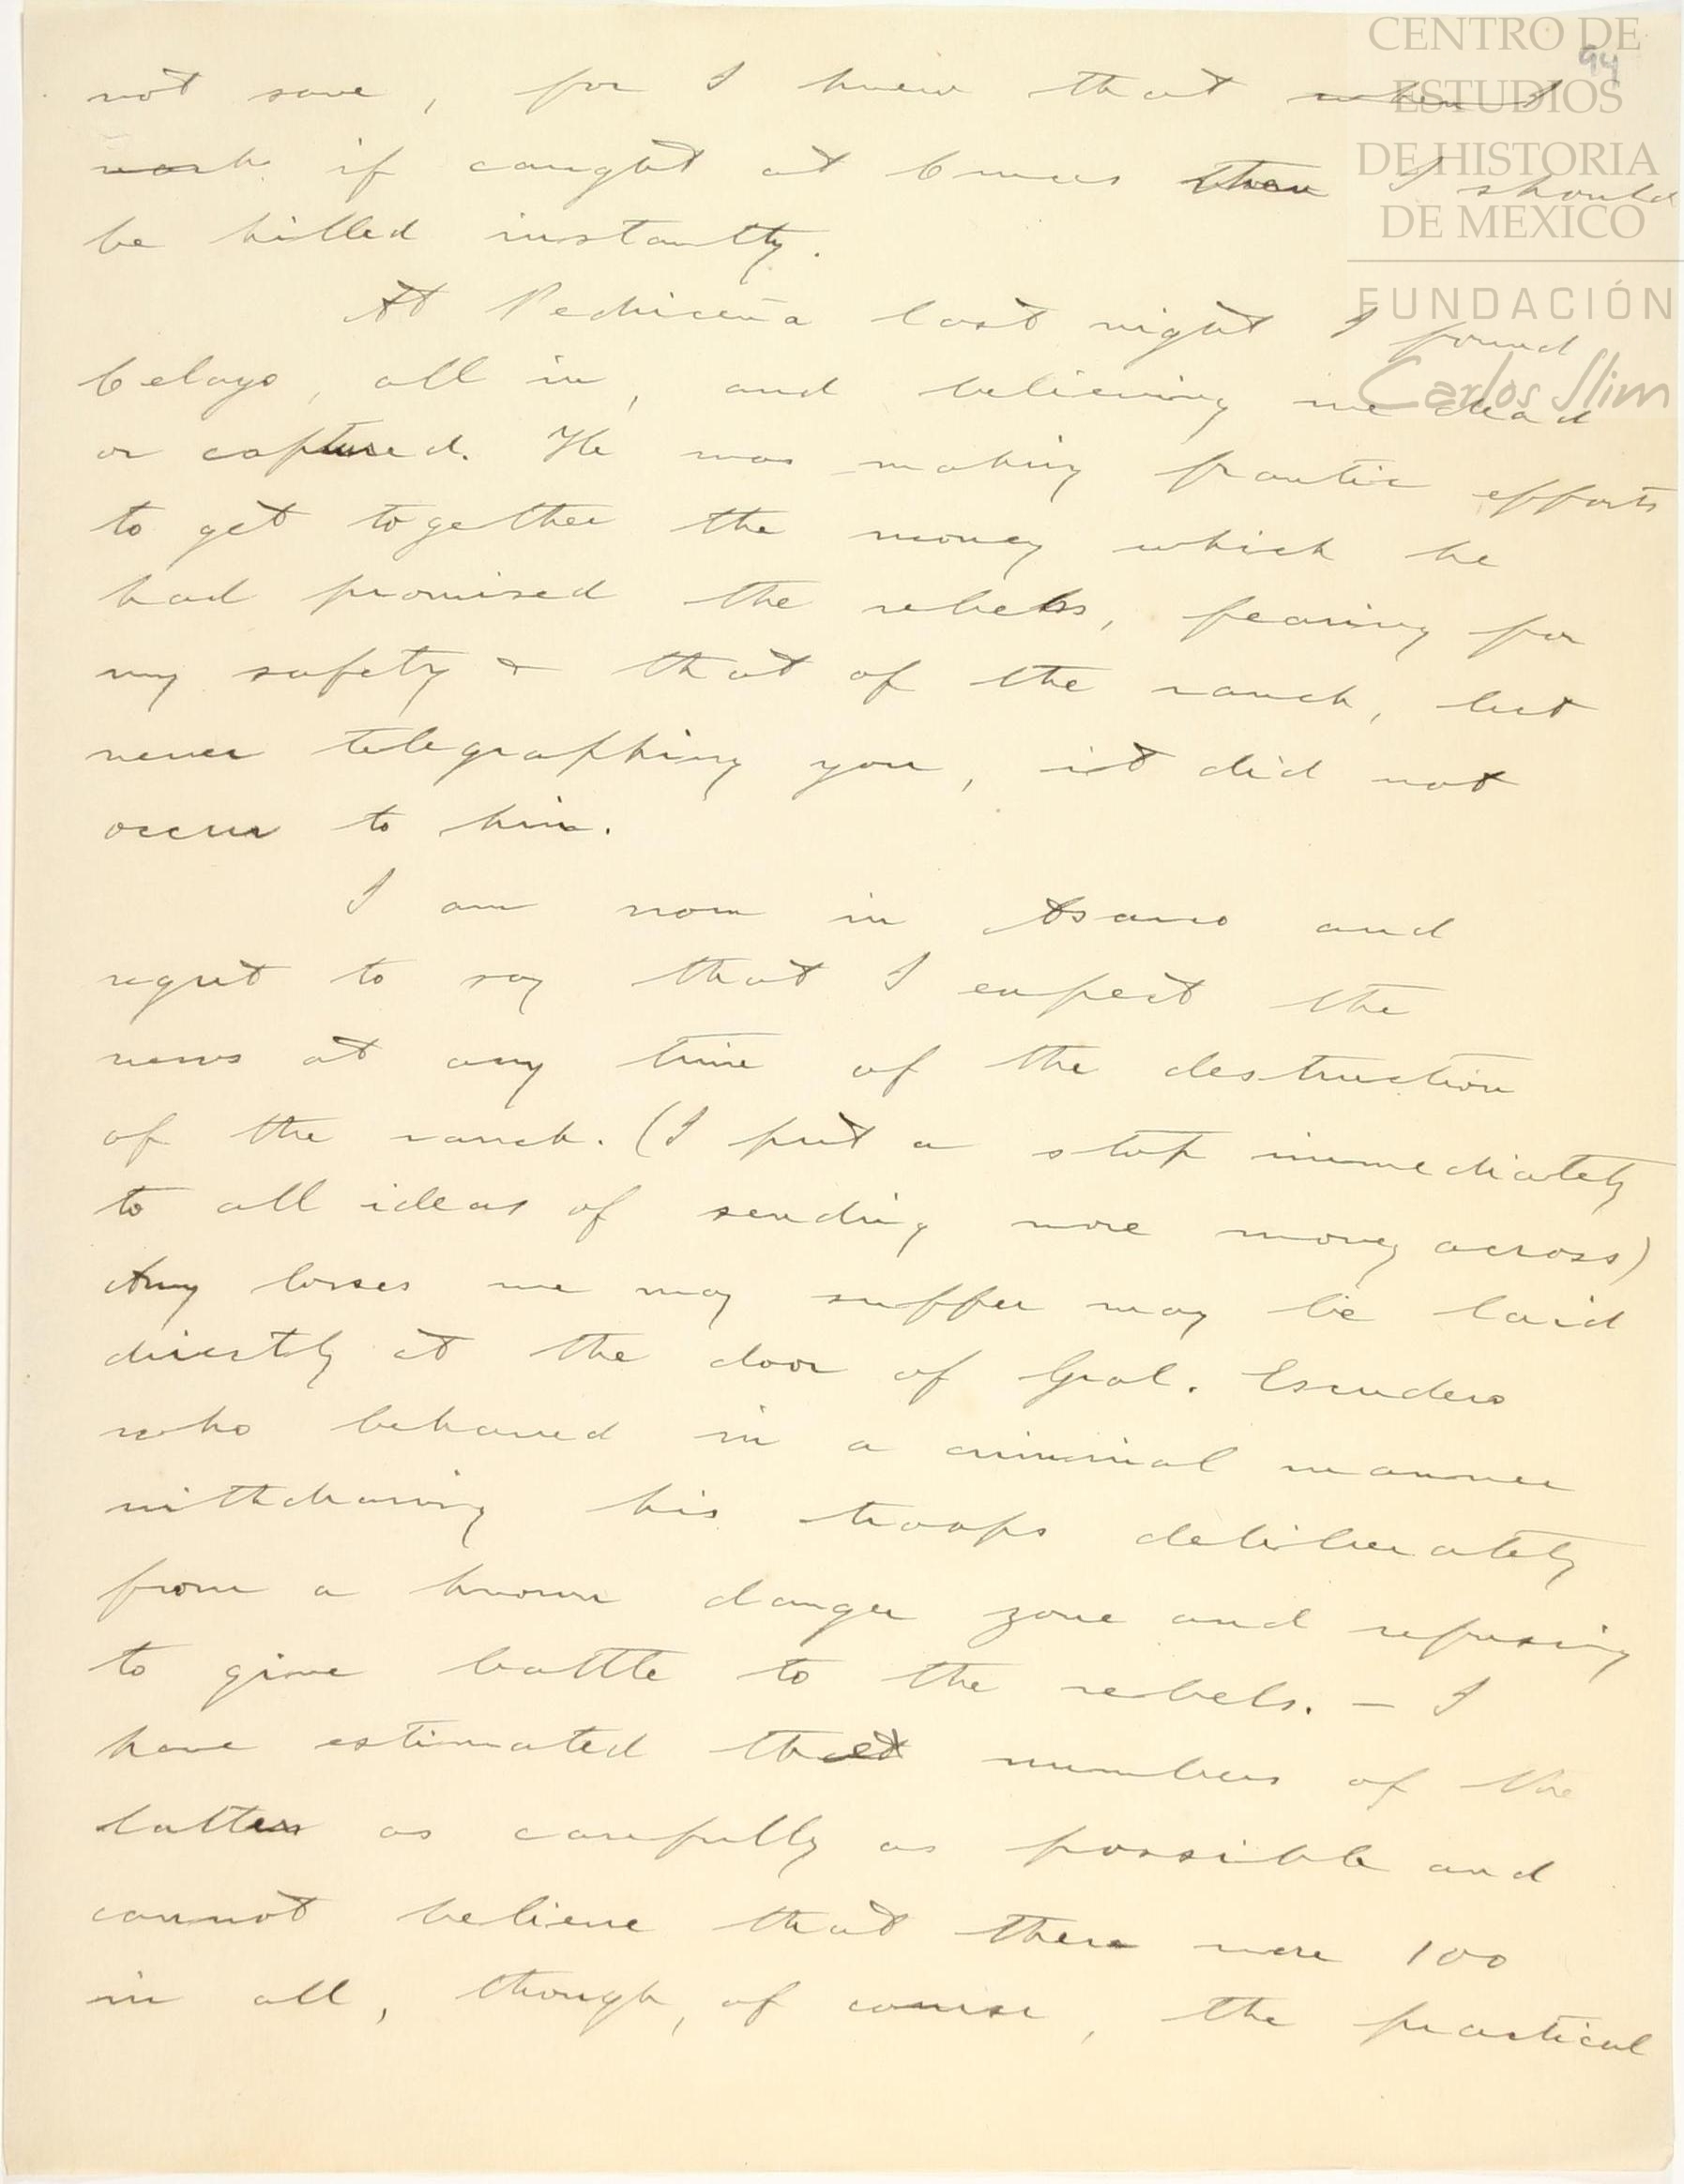 CENTRO DE
ESTUDIOS
DE HISTORIA
DE MEXICO
FUNDACIÓN
Carlos Slim
94
not save, for I knew that when I
if caught at Cruces then I should
be killed instantly.
At Pedriceña last night I found
Celayo, all in, and believing me dead
or captured. He was making frantic efforts
to get together the money which he
had promised the rebels, fearing for
my safety & that of the ranch, but
never telegraphing you, it did not
occur to him.
I am now in Asarco and
regret to say that I expect the
news at any time of the destruction
of the ranch. (I put a stop immediately
to all ideas of sending more money across)
Any losses we may suffer may be laid
directly at the door of Gral. Escudero
who behaved in a criminal manner
withdrawing his troops deliberately
from a known danger zone and refusing
to give battle to the rebels. — I
have estimated the numbers of the
latter as carefully as possible and
cannot believe that there were 100
in all, though, of course, the practical